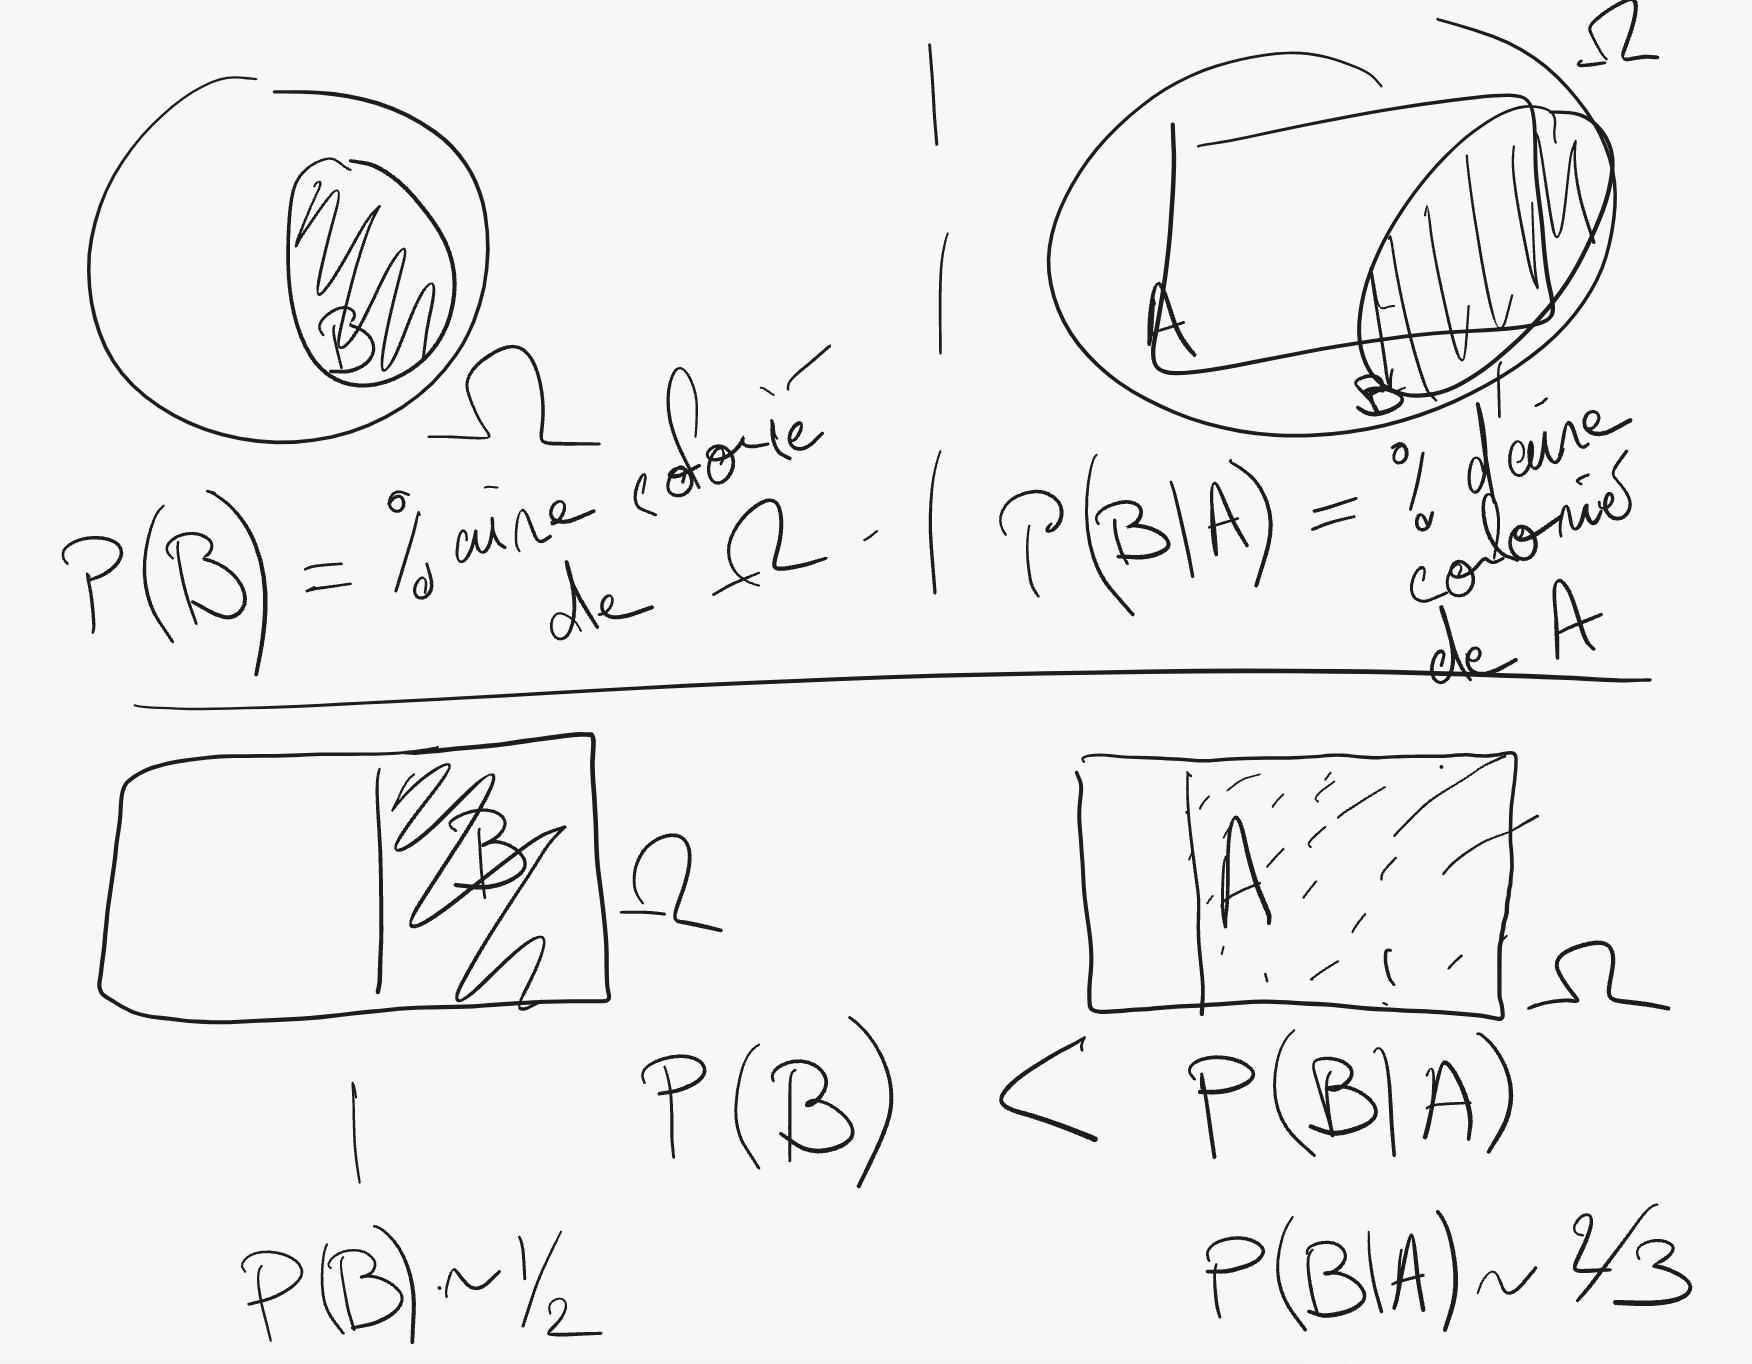 Ω
B
Ω
A
B
P(B) = % aire colorié
de Ω.
P(B|A) = % d'aire
colorié
de A
B
Ω
A
Ω
P(B) < P(B|A)
P(B) ~ 1/2
P(B|A) ~ 2/3